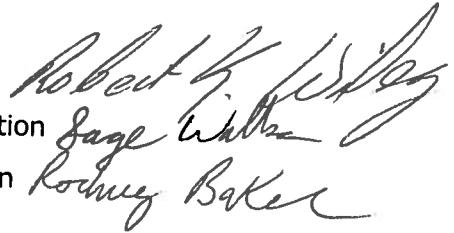 Robert K. Wiley
tion Sage Watson
n Rodney Baker